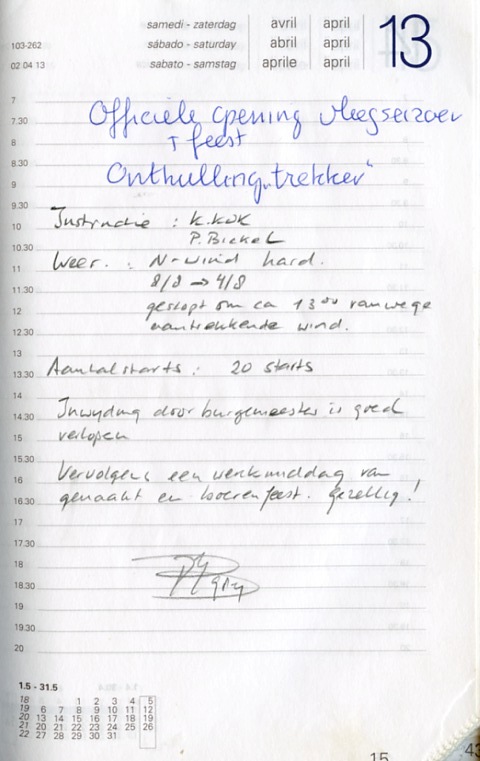 samedi - zaterdag avril april 13
103-262 sábado - saturday abril april
02 04 13 sabato - samstag aprile april
7
7.30 Officiële opening vliegseizoen
8 + feest
8.30
9 Onthulling „trekker"
9.30
10 Instructie : K. Kok
10.30 P. Bickel
11 Weer. : N-wind hard.
11.30 8/8 → 4/8
12 gestopt om ca 13⁰⁰ vanwege
12.30 aantrekkende wind.
13
13.30 Aantal starts : 20 starts
14
14.30 Inwyding door burgemeester is goed
15 verlopen
15.30
16 Vervolgens een werkmiddag van
16.30 gemaakt en boerenfeest. gezellig!
17
17.30
18
18.30
19
19.30
20
1.5 - 31.5
18 1 2 3 4 5
19 6 7 8 9 10 11 12
20 13 14 15 16 17 18 19
21 20 21 22 23 24 25 26
22 27 28 29 30 31
15 43